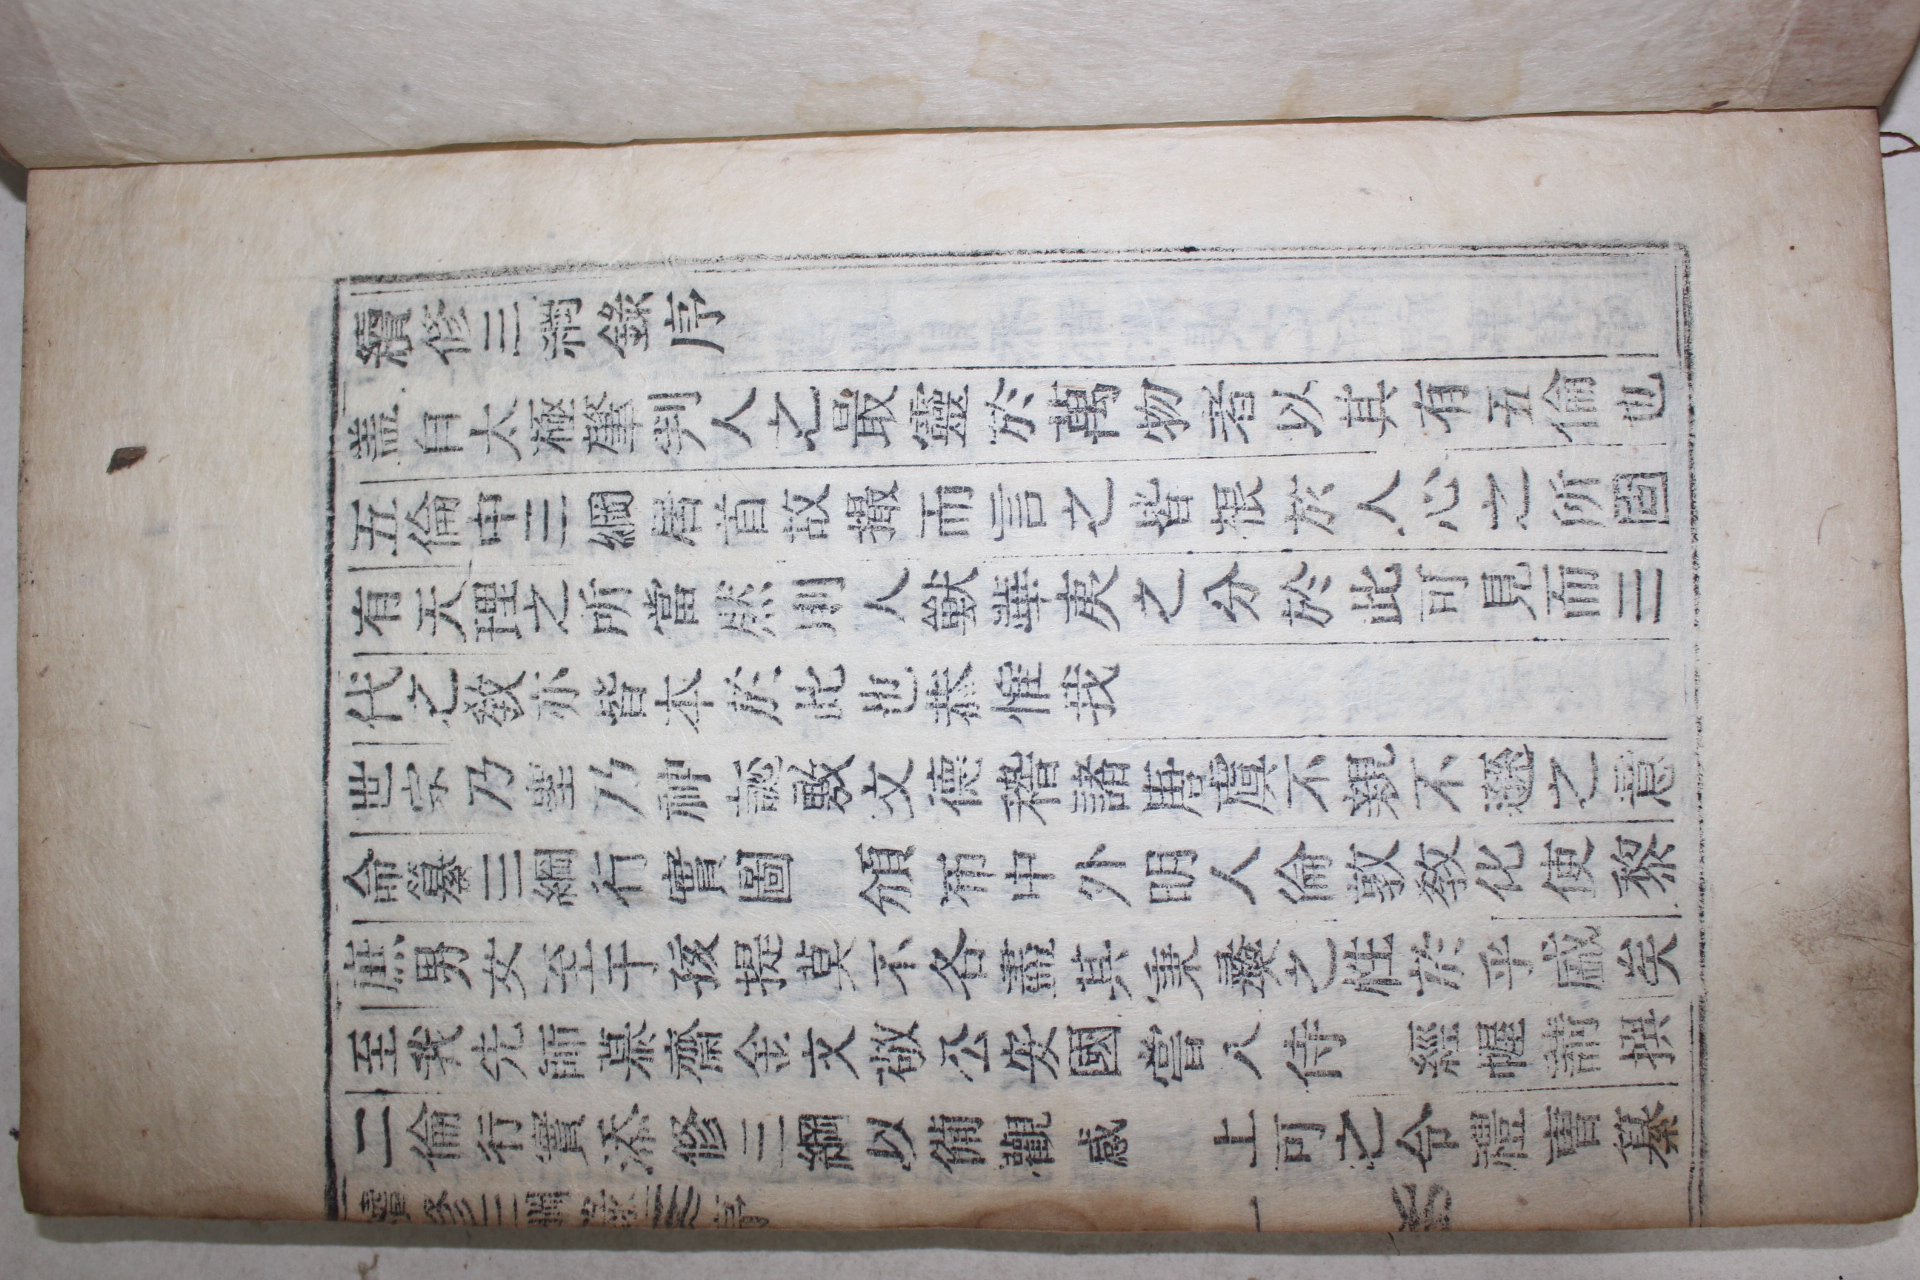 續修三綱錄序
盖自太極肇判人之最靈於萬物者以其有五倫也
五倫中三綱居首故撮而言之皆根於人心之所固
有天理之所當然則人獸華夷之分於此可見而三
代之敎亦皆本於此也恭惟我
世宗乃聖乃神誕敷文德稽諸唐虞不親不遜之意
命纂三綱行實圖 頒布中外明人倫敦敎化使黎
庶男女至于孩提莫不各盡其秉彛之性於乎盛矣
至我先師慕齋金文敬公安國嘗入侍 經幄請撰
二倫行實添修三綱以備觀感 上可之令禮曺纂
續修三綱錄 序 一